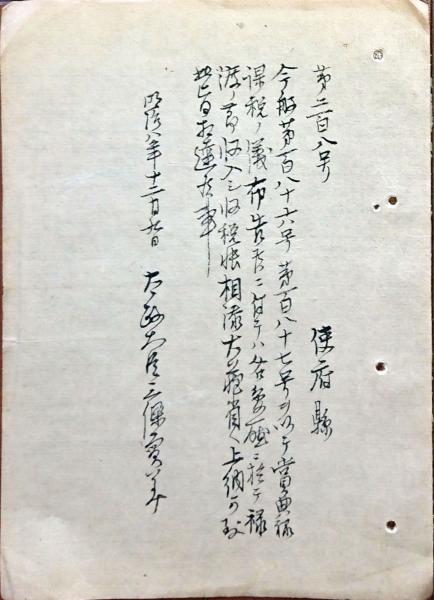 第二百八号
使府縣
今般第百八十六号第百八十七号ヲ以テ賞典禄
課税ノ儀布告候ニ付テハ各地方廳ニ於テ禄
渡ノ節収入シ収税帳相添大蔵省ヘ上納可致
此旨相達候事
明治八年十二月九日 太政大臣三條實美